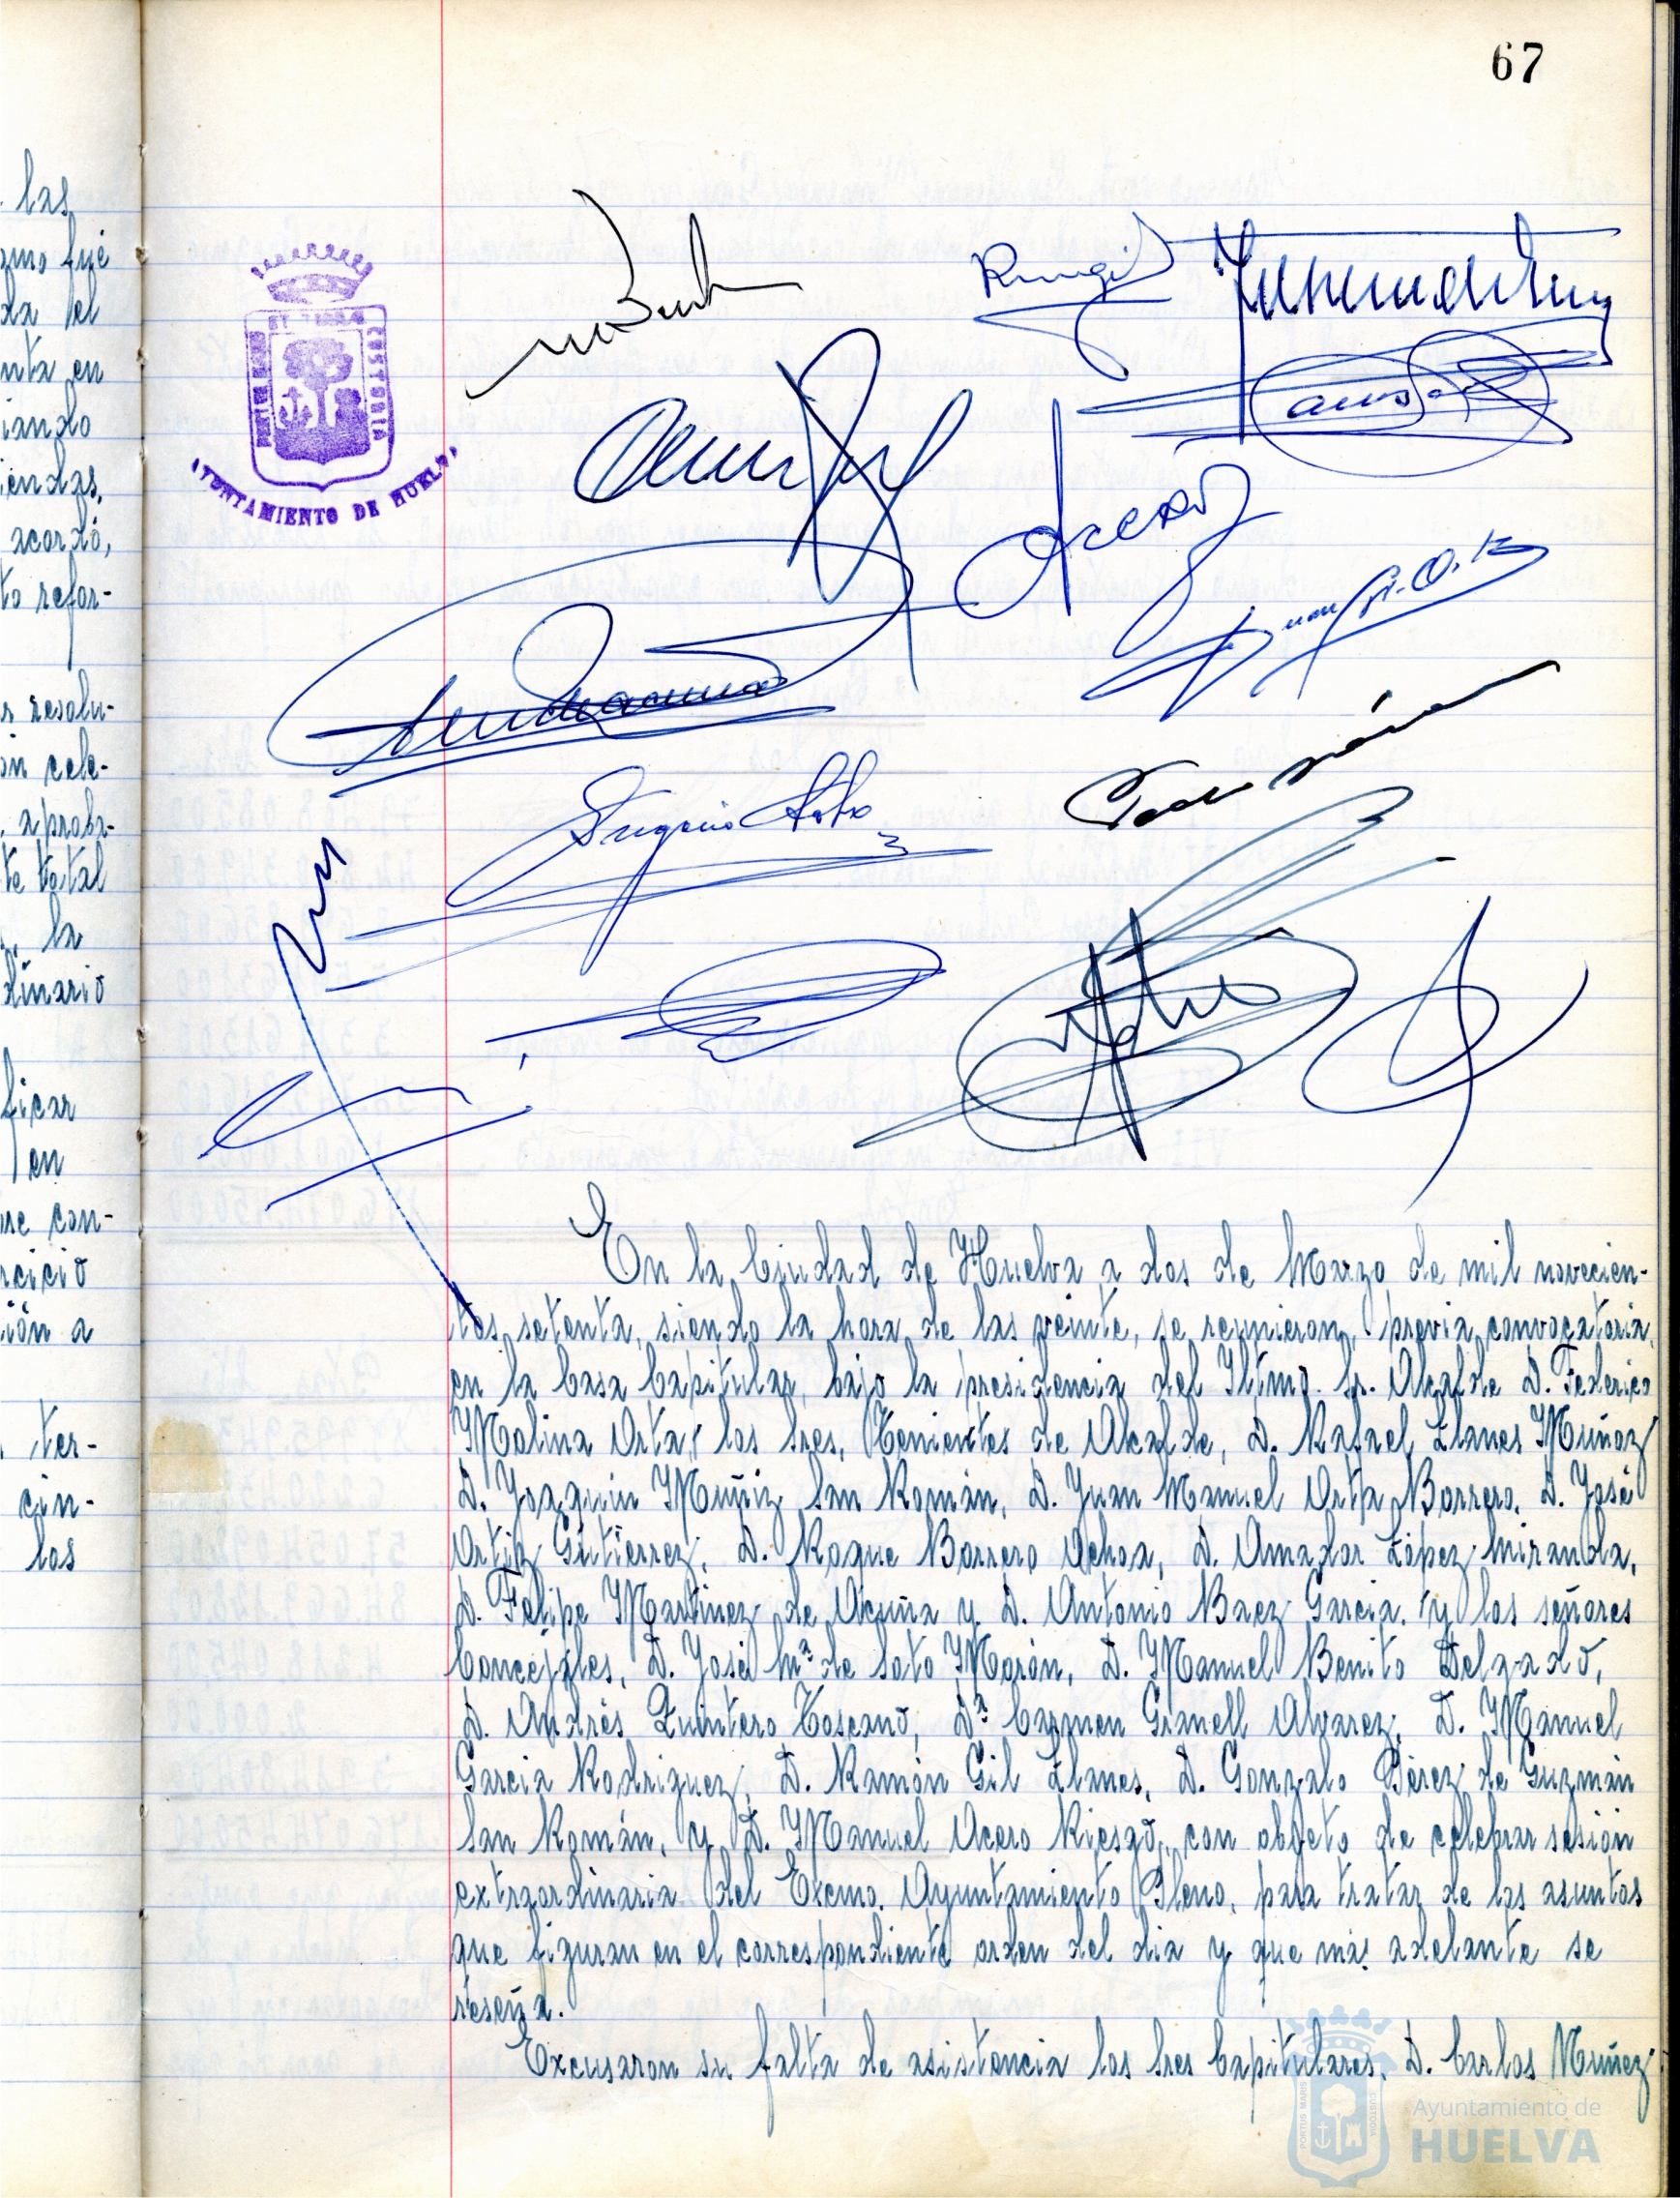 67
las
fué
el
en
iendas,
acordó,
to refor-
r resolu-
ón cele-
aproba-
te total
la
dinario
ficar
en
con-
ción a
ter-
cin-
los
PORTUS MARIS ET TERRAE CUSTODIA
AYUNTAMIENTO DE HUELVA
En la Ciudad de Huelva a dos de Marzo de mil novecien-
tos setenta, siendo la hora de las veinte, se reunieron, previa convocatoria,
en la Casa Capitular, bajo la presidencia del Iltmo. Sr. Alcalde D. Federico
Molina Orta, los Sres. Tenientes de Alcalde, D. Rafael Llanes Muñoz
D. Joaquin Muñiz San Román, D. Juan Manuel Orta Borrero, D. José
Ortiz Gutierrez, D. Roque Borrero Ochoa, D. Amador López Miranda,
D. Felipe Martinez de Acuña y D. Antonio Baez Garcia, y los señores
Concejales, D. José Mª de Soto Morón, D. Manuel Benito Delgado,
D. Andrés Quintero Toscano, Dª Carmen Granell Alvarez, D. Manuel
Garcia Rodriguez, D. Ramón Gil Llanes, D. Gonzalo Pérez de Guzmán
San Román, y D. Manuel Acero Riesgo, con objeto de celebrar sesión
extraordinaria del Excmo. Ayuntamiento Pleno, para tratar de los asuntos
que figuran en el correspondiente orden del dia y que más adelante se
reseña.
Excusaron su falta de asistencia los Sres Capitulares, D. Carlos Nuñez
Ayuntamiento de
HUELVA